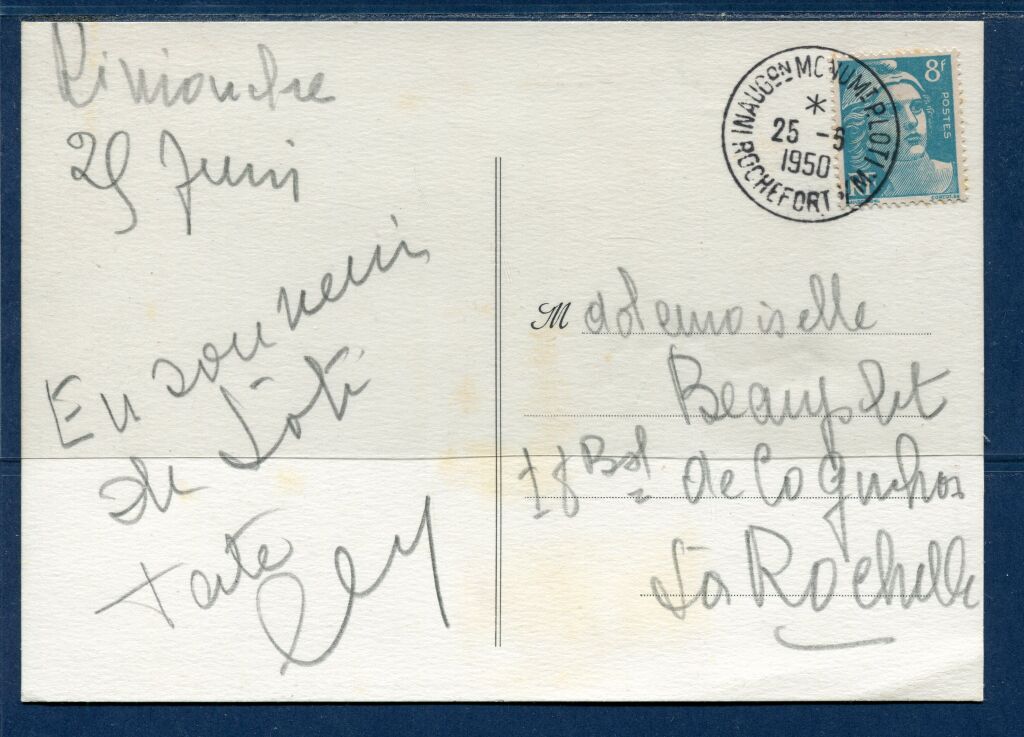 Dimanche
25 Juin
En souvenir
de Loti
tante
INAUGON MONUMT P. LOTI
*
25 -6
1950
ROCHEFORT S/M
8f
POSTES
Mademoiselle
18 Bd de Cognehors
La Rochelle